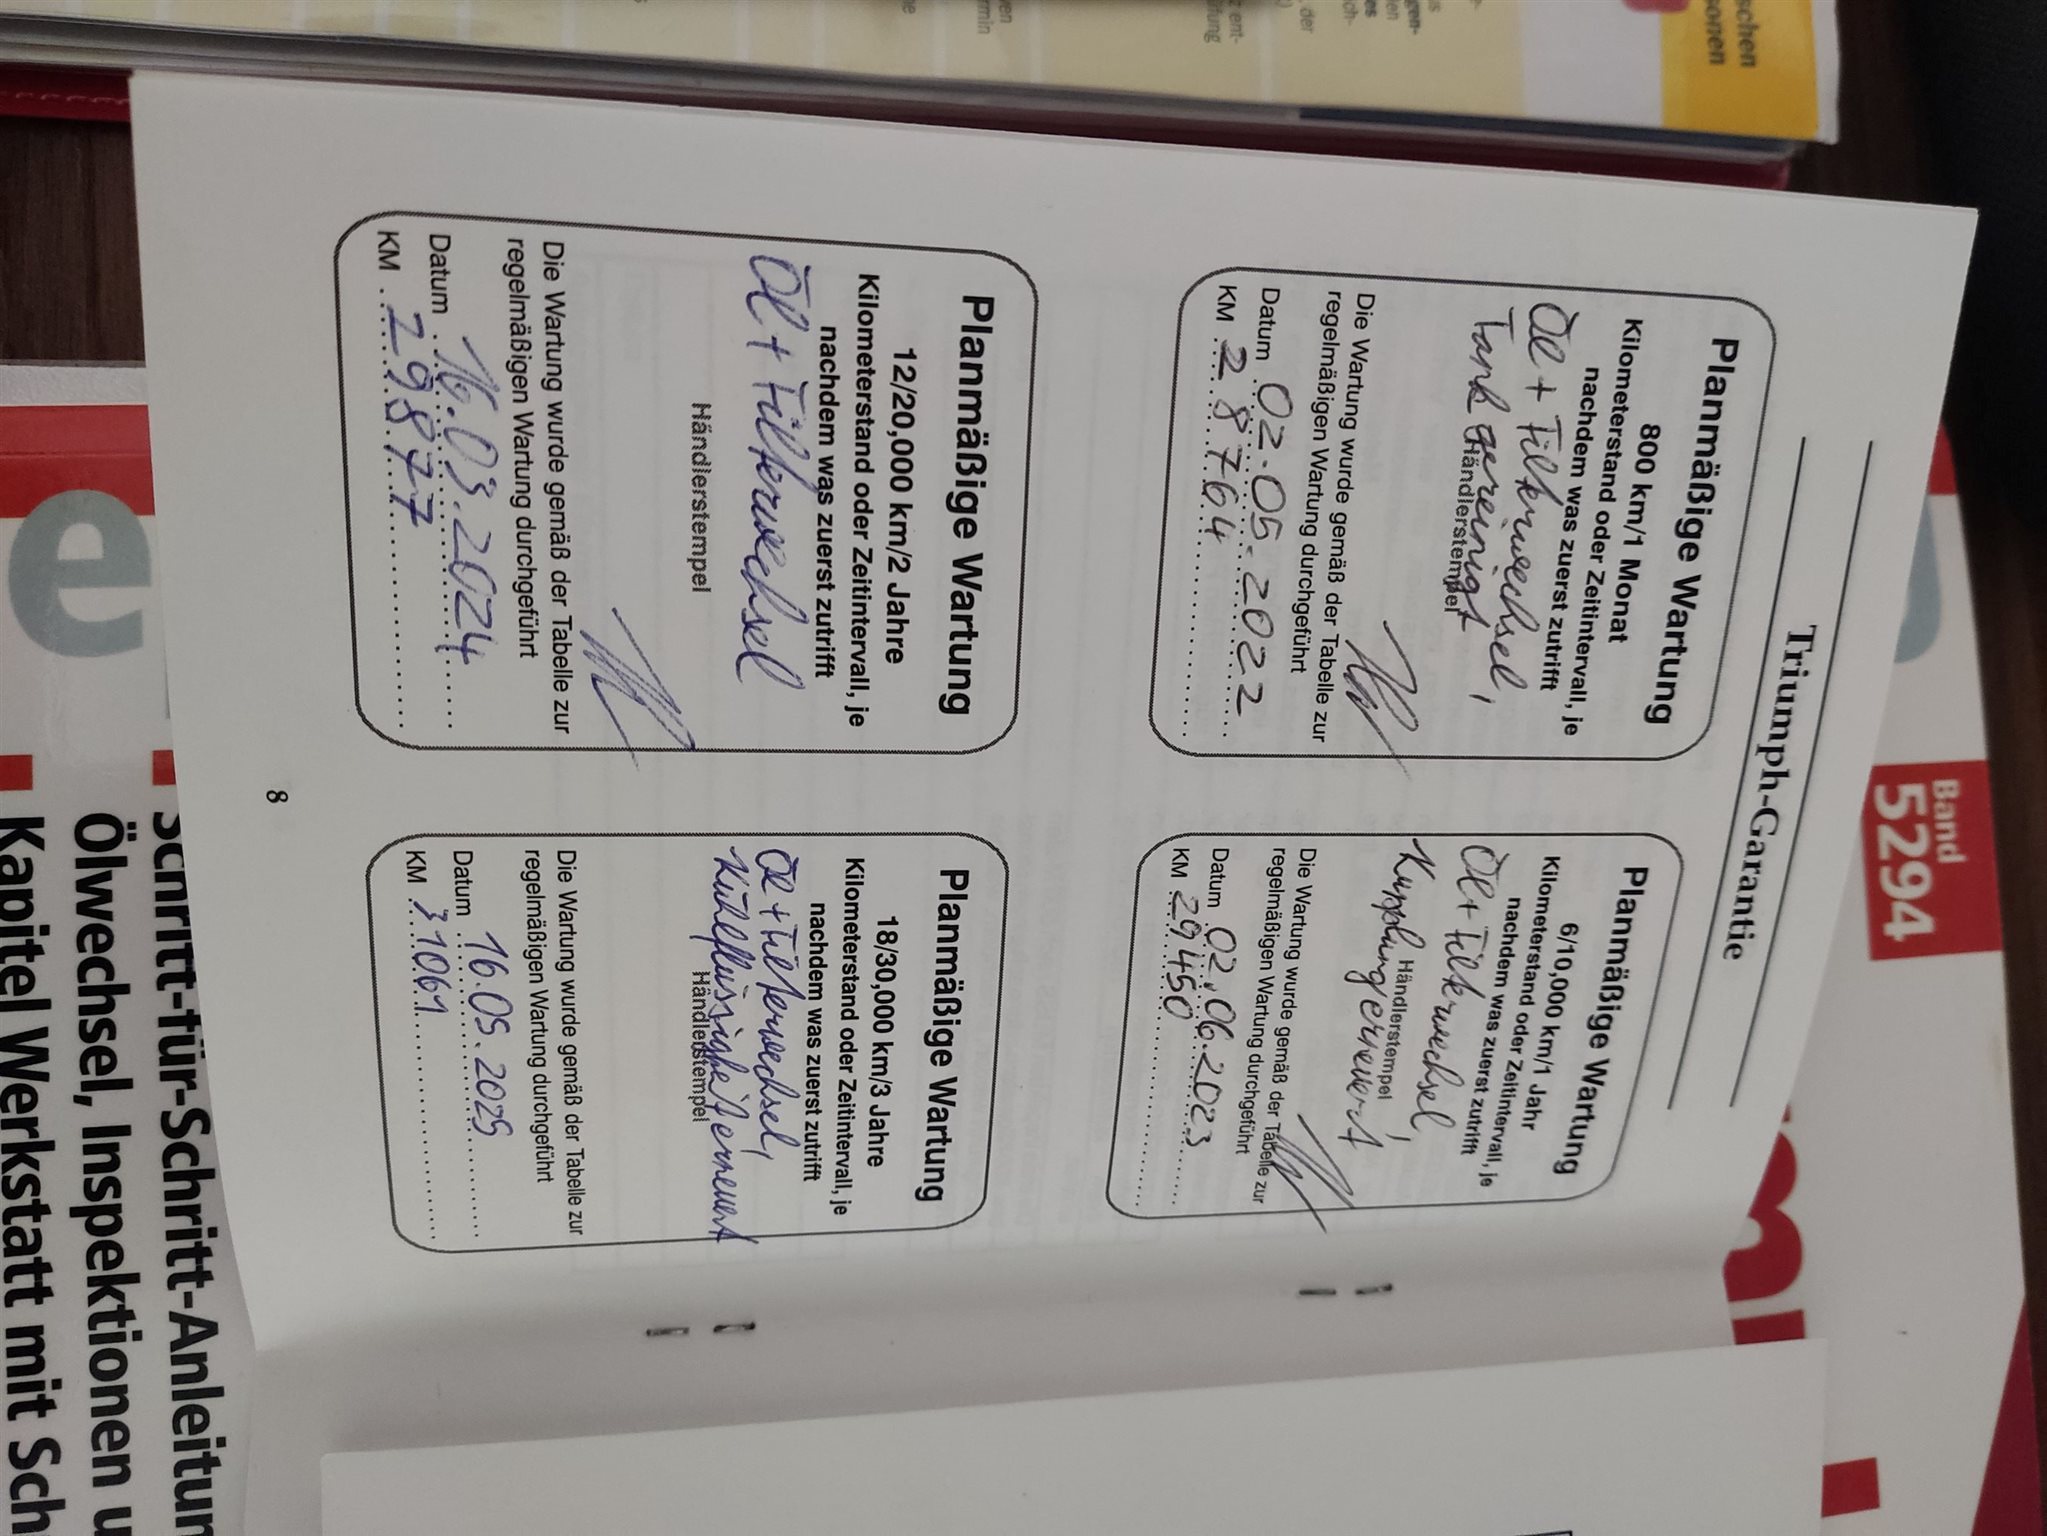 Triumph-Garantie
Planmäßige Wartung
800 km/1 Monat
Kilometerstand oder Zeitintervall, je
nachdem was zuerst zutrifft
Öl + Filterwechsel,
Tank gereinigt
Händlerstempel
Die Wartung wurde gemäß der Tabelle zur
regelmäßigen Wartung durchgeführt
Datum 02.05.2022
KM 28764
Planmäßige Wartung
6/10,000 km/1 Jahr
Kilometerstand oder Zeitintervall, je
nachdem was zuerst zutrifft
Öl + Filterwechsel,
Händlerstempel
Kupplung erneuert
Die Wartung wurde gemäß der Tabelle zur
regelmäßigen Wartung durchgeführt
Datum 02.06.2023
KM 29450
Planmäßige Wartung
12/20,000 km/2 Jahre
Kilometerstand oder Zeitintervall, je
nachdem was zuerst zutrifft
Öl + Filterwechsel
Händlerstempel
Die Wartung wurde gemäß der Tabelle zur
regelmäßigen Wartung durchgeführt
Datum 16.03.2024
KM 29877
Planmäßige Wartung
18/30,000 km/3 Jahre
Kilometerstand oder Zeitintervall, je
nachdem was zuerst zutrifft
Öl + Filterwechsel,
Kühlflüssigkeit erneuert
Händlerstempel
Die Wartung wurde gemäß der Tabelle zur
regelmäßigen Wartung durchgeführt
Datum 16.05.2025
KM 31061
8
Band
5294
Schritt-für-Schritt-Anleitun
Ölwechsel, Inspektionen u
Kapitel Werkstatt mit Sch
schen
sonen